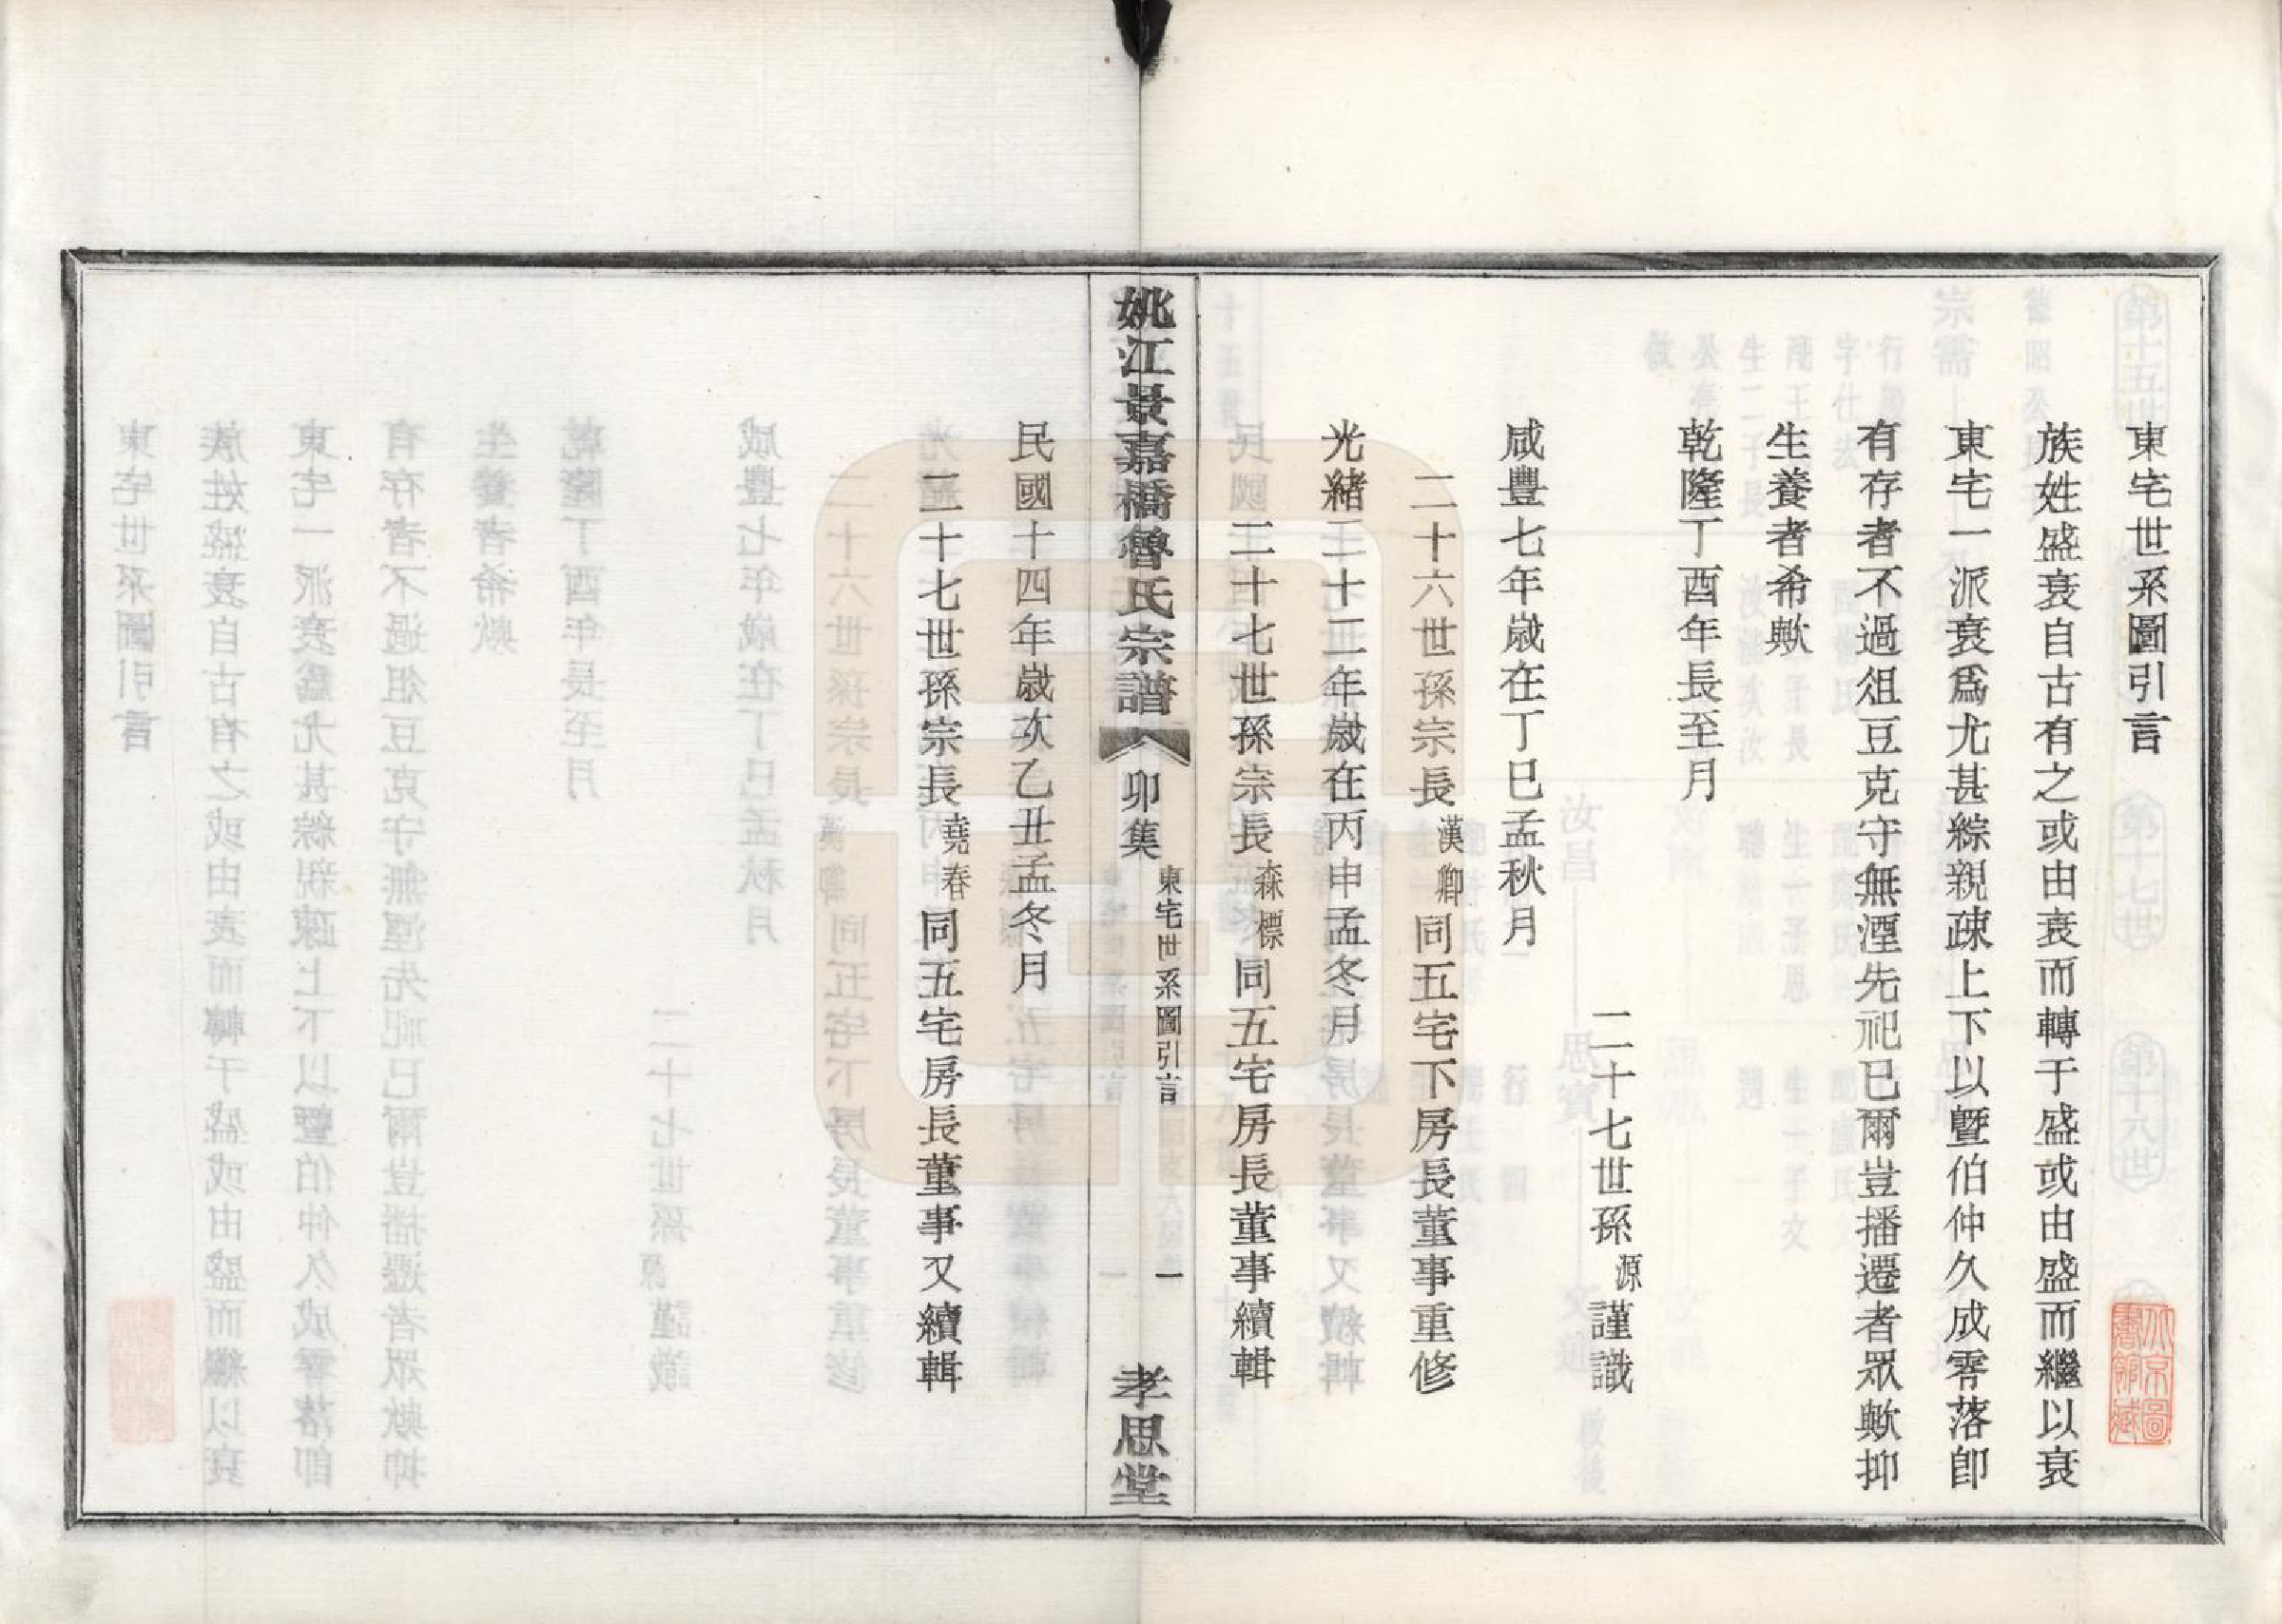 東宅世系圖引言
族姓盛衰自古有之或由衰而轉于盛或由盛而繼以衰
東宅一派衰爲尤甚綜親疎上下以曁伯仲久成零落卽
有存者不過俎豆克守無湮先祀已爾豈播遷者眾歟抑
生養者希歟
乾隆丁酉年長至月
二十七世孫源謹識
咸豐七年歲在丁巳孟秋月
二十六世孫宗長漢卿同五宅下房長董事重修
光緒二十二年歲在丙申孟冬月
二十七世孫宗長森標同五宅房長董事續輯
姚江景嘉橋魯氏宗譜
卯集
東宅世系圖引言
一
孝思堂
民國十四年歲次乙丑孟冬月
二十七世孫宗長堯春同五宅房長董事又續輯
北京圖
書館藏